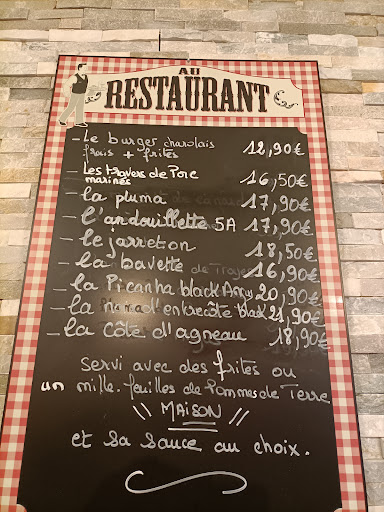 AU
RESTAURANT
- Le burger charolais 12,90€
frais + frites
- Les travers de Porc
marinés 16,50€
- la pluma 17,90€
- l'andouillette 5A 17,90€
- le jarreton 18,50€
- la bavette de 16,90€
- la Picanha black Angus 20,90€
- la d'entrecôte black 21,90€
- la côte d'agneau 18,90€
servi avec des frites ou
un mille-feuilles de Pommes de Terre
\\ MAISON //
et sa sauce au choix.